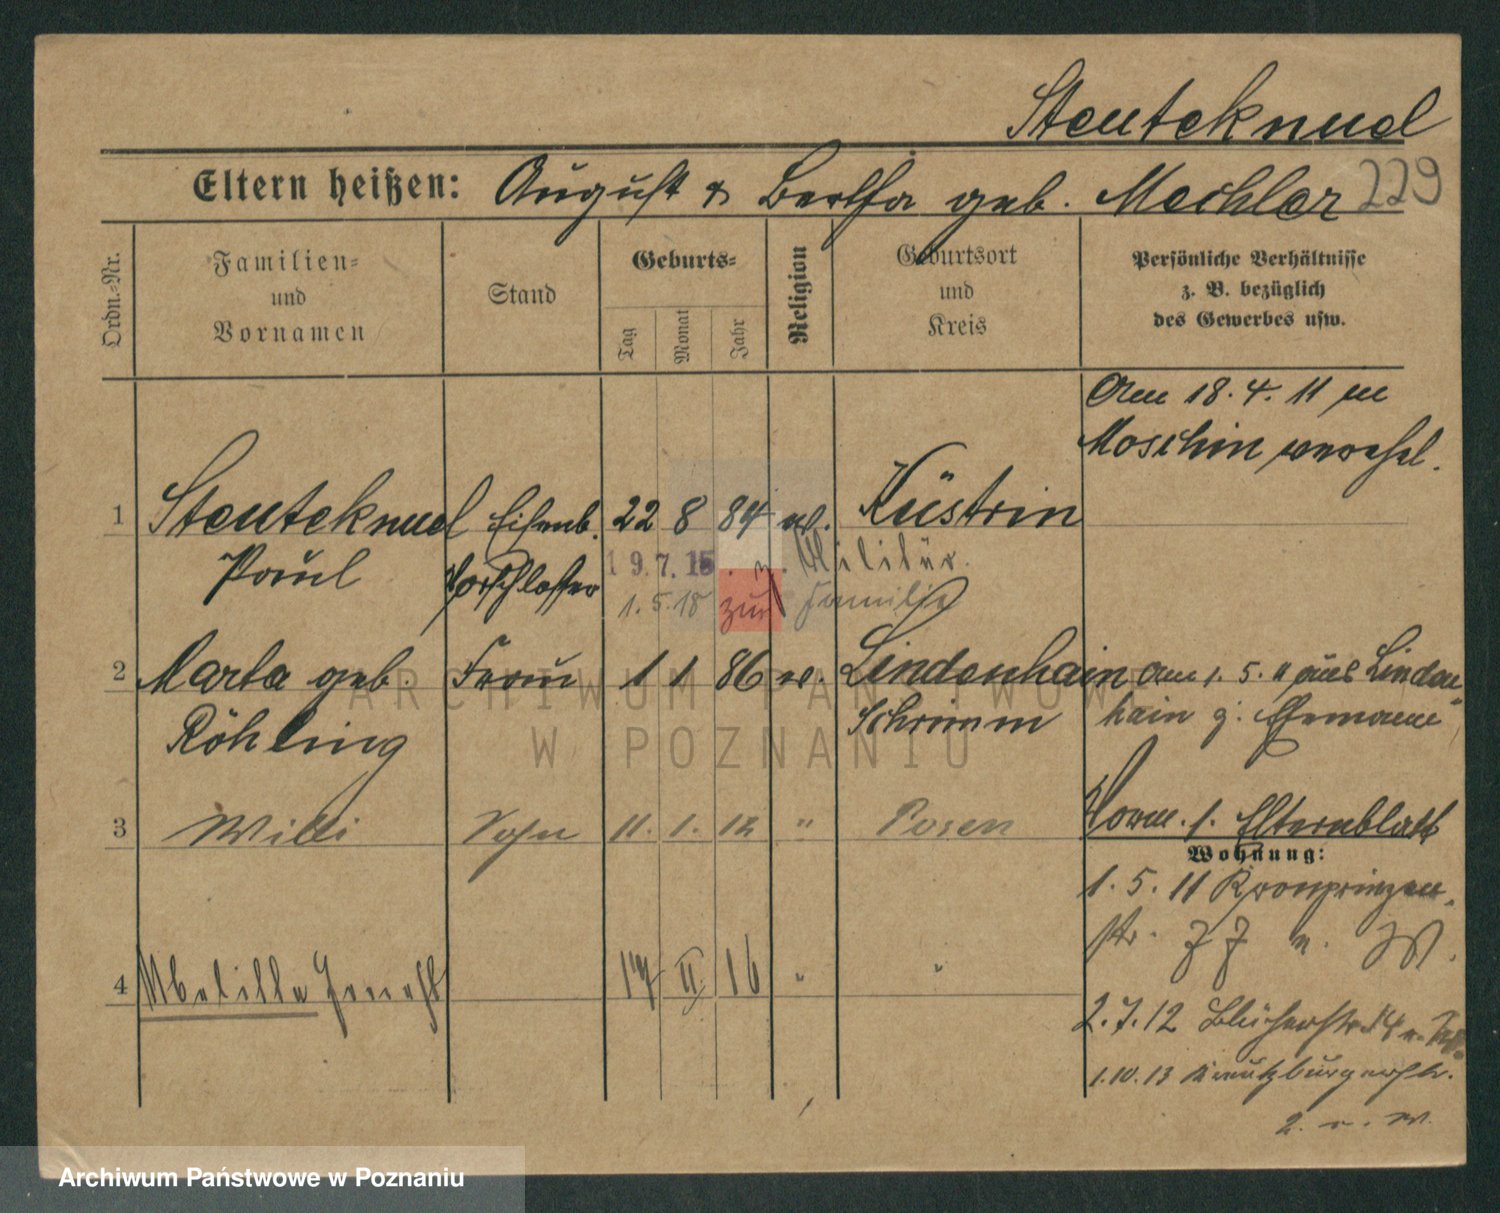 Steuteknuel
Eltern heißen: August & Bertha geb. Mechler 229
Ordn.-Nr.
Familien- und Vornamen
Stand
Geburts-
Tag
Monat
Jahr
Religion
Geburtsort und Kreis
Persönliche Verhältnisse
z. B. bezüglich
des Gewerbes usw.
Am 18.4.11 in
Moschin verehel.
1 Steuteknuel Eisenb. 22 8 84 ev. Küstrin
Paul 19.7.15. z. Militär.
1.5.18 zur Familie
2 Marta geb. Frau 1 1 86 ev. Lindenhain am 1.5.11 aus Linden-
Röhling Schrimm hain z. Ehemann
3 Willi Sohn 11. 1. 12 " Posen Vorm. s. Elternblatt
Wohnung:
1.5.11 Kronprinzen-
str.
4 17 II. 16 " "
2.7.12 Blücherstr.
1.10.13 Kreuzburgerstr.
2.
ARCHIWUM PAŃSTWOWE
W POZNANIU
Archiwum Państwowe w Poznaniu